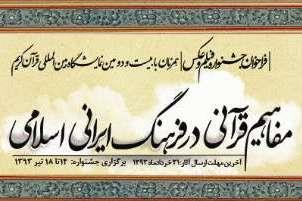 فراخوان جشنواره فیلم و عکس همزمان با بیست و دومین نمایشگاه بین المللی قرآن کریم
مفاهیم قرآنی در فرهنگ ایرانی اسلامی
آخرین مهلت ارسال آثار: ۳۱ خرداد ماه ۱۳۹۳ برگزاری جشنواره: ۱۴ تا ۱۸ تیر ۱۳۹۳